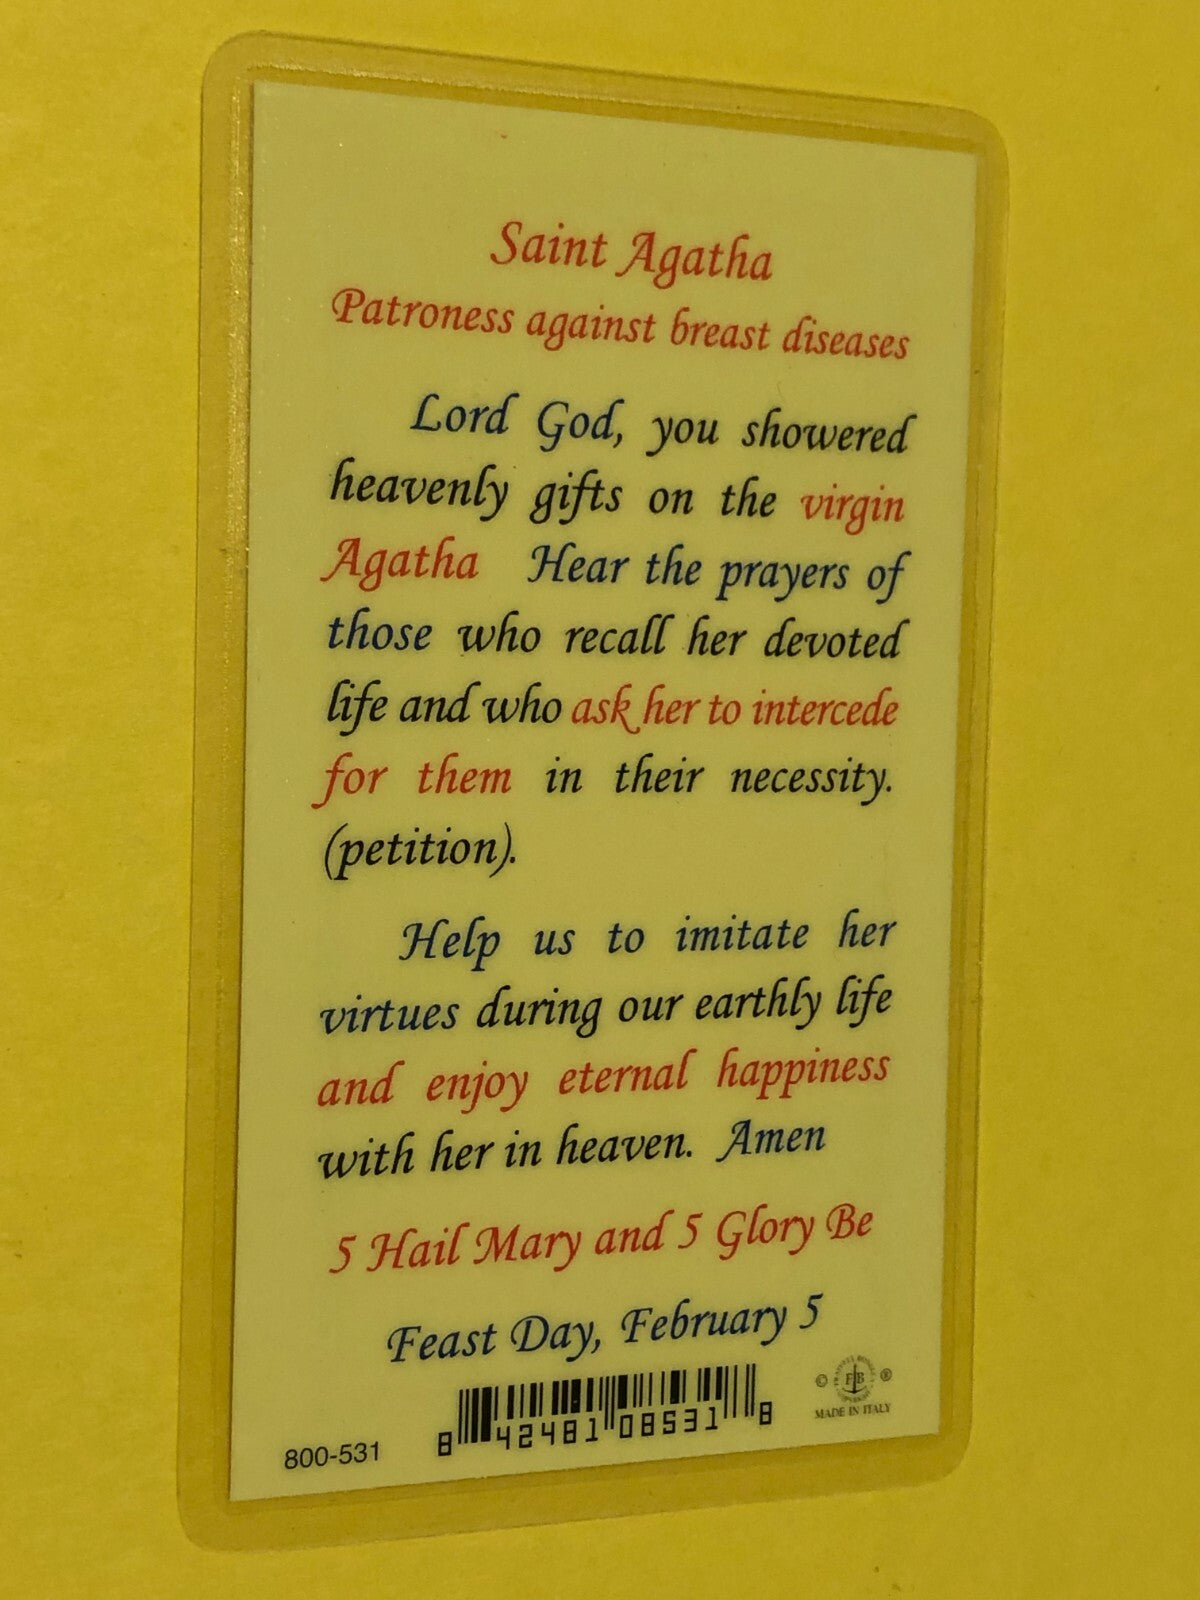 Saint Agatha
Patroness against breast diseases
Lord God, you showered
heavenly gifts on the virgin
Agatha Hear the prayers of
those who recall her devoted
life and who ask her to intercede
for them in their necessity.
(petition).
Help us to imitate her
virtues during our earthly life
and enjoy eternal happiness
with her in heaven. Amen
5 Hail Mary and 5 Glory Be
Feast Day, February 5
800-531
8 42481 08531 8
© FB ®
MADE IN ITALY